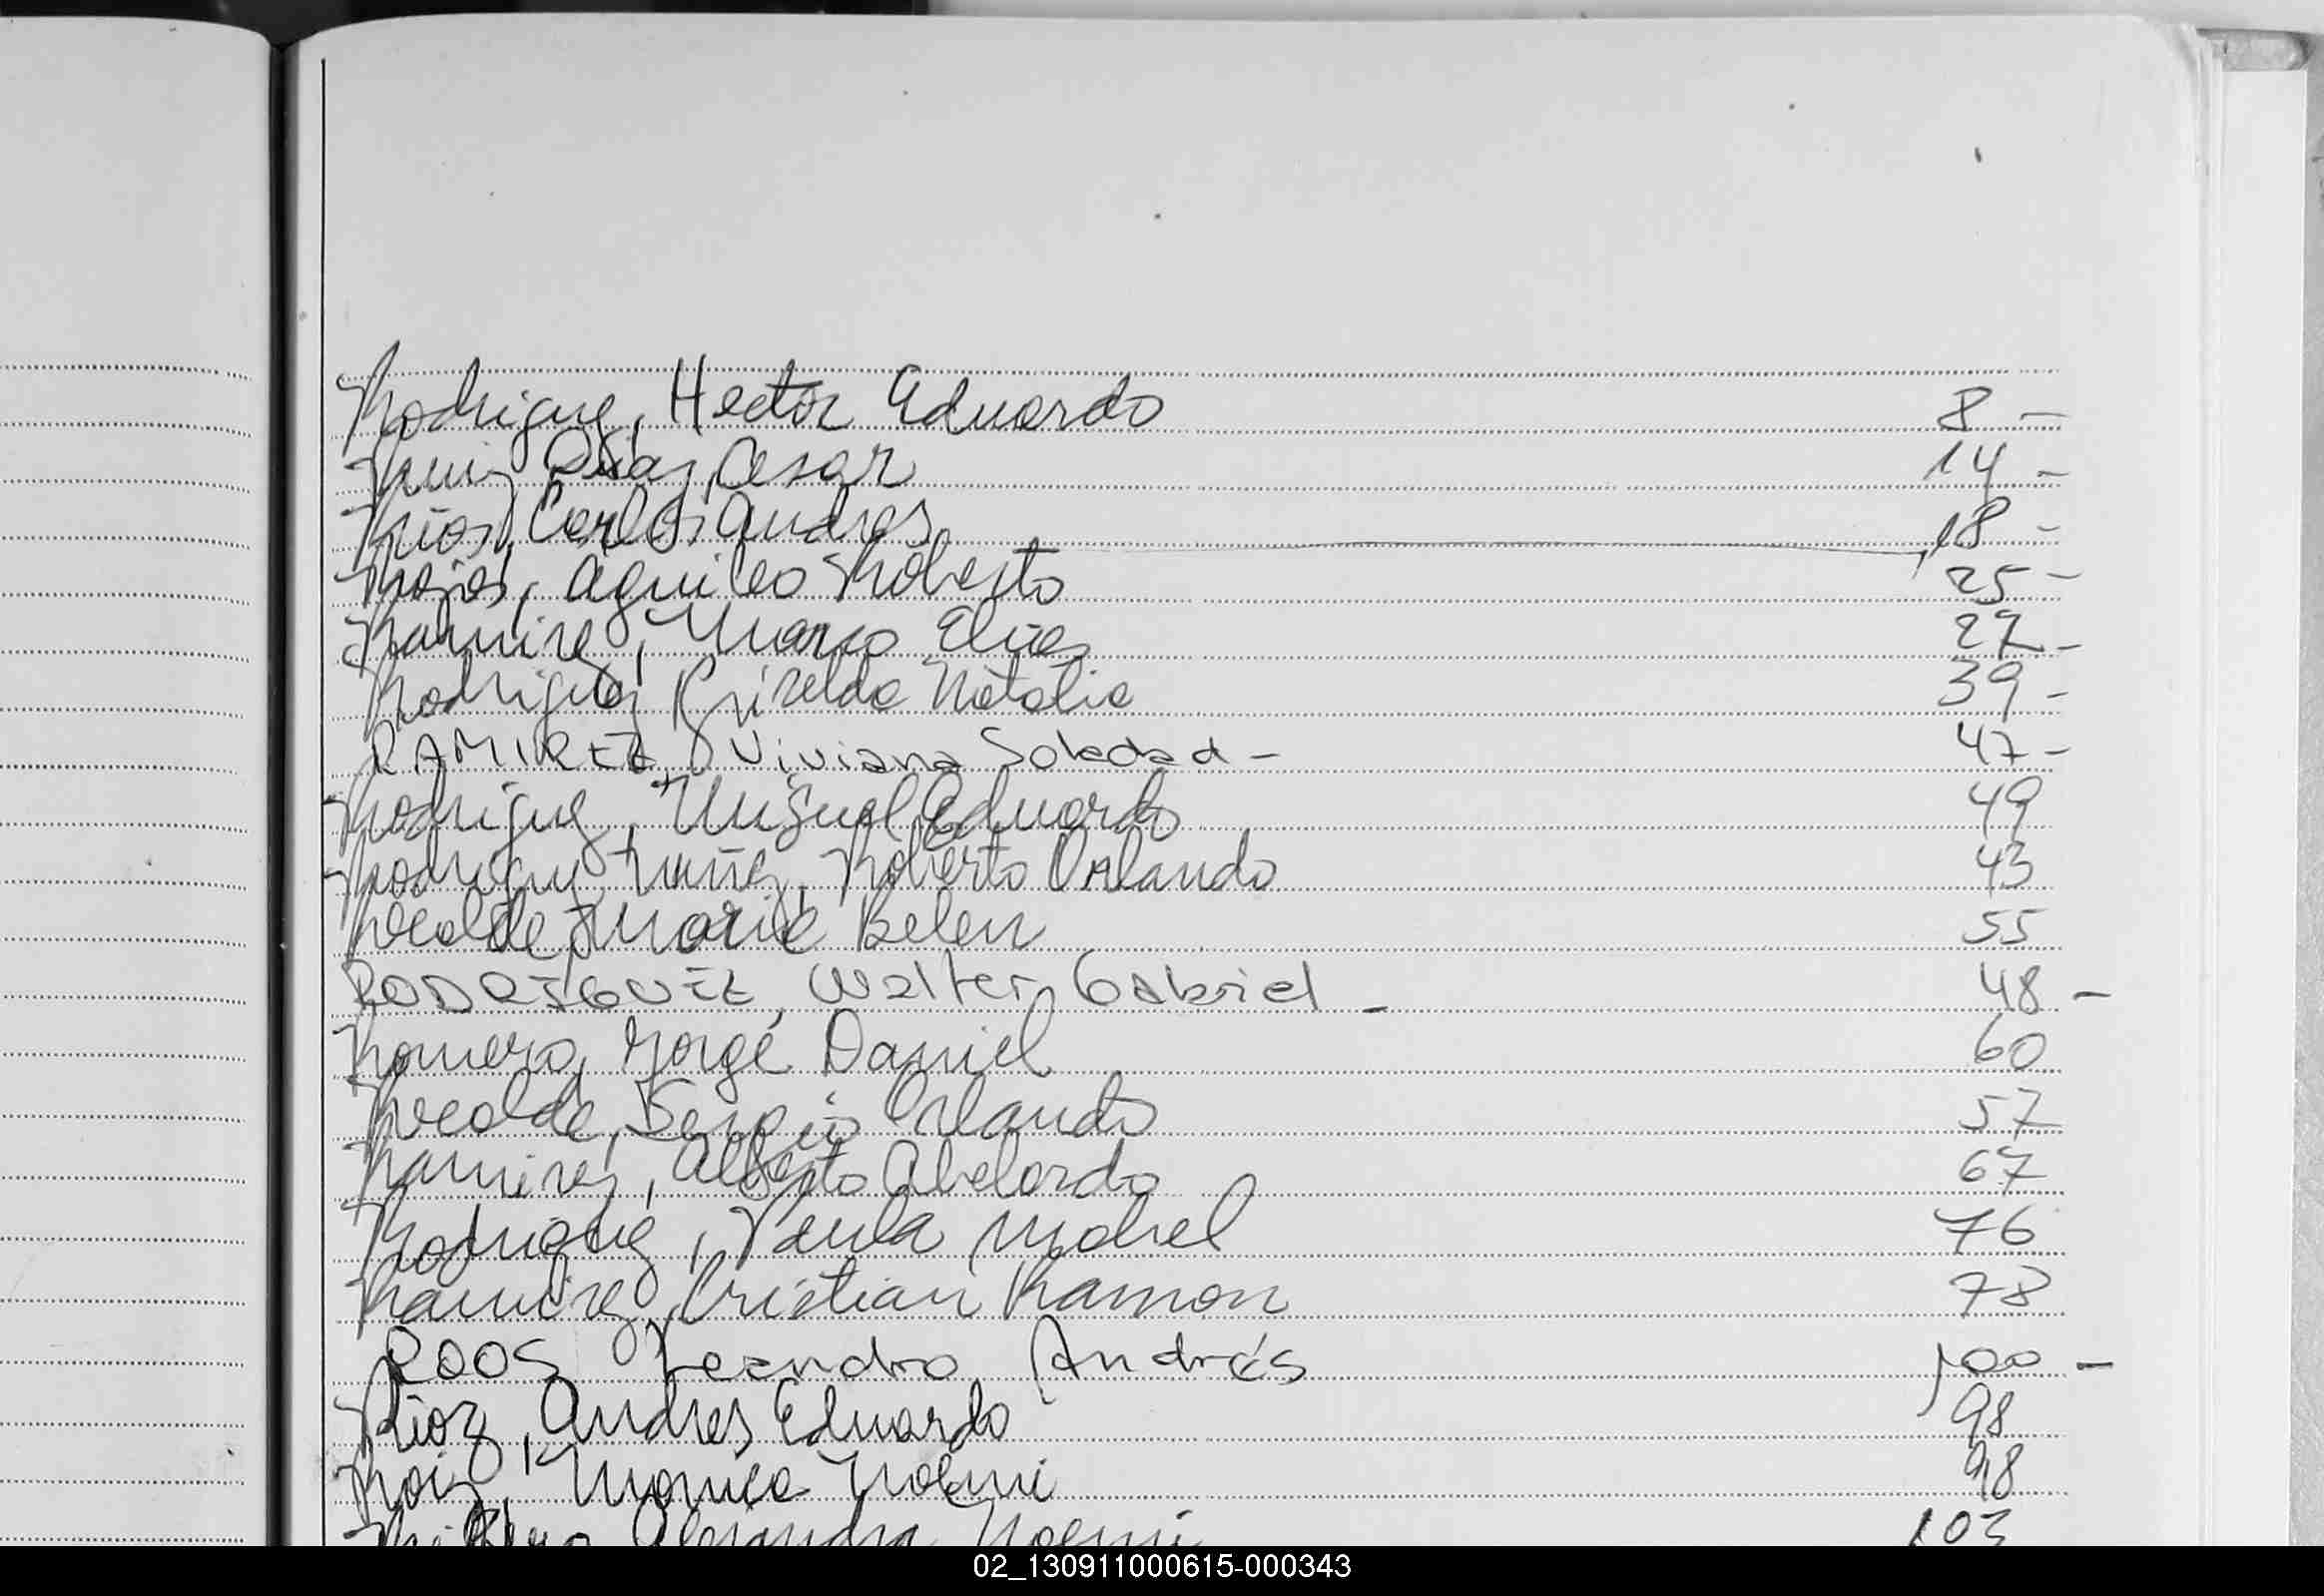 Rodriguez, Hector Eduardo 8 –
Ruiz Diaz, Cesar 14 –
Rios, Carlos Andres 18 –
Rojas, Aquileo Roberto 25 –
Ramirez, Marco Elias 27 –
Rodriguez, Griselda Natalia 39 –
RAMIREZ, Viviana Soledad – 47 –
Rodriguez, Miguel Eduardo 49
Rodriguez Nuñez, Roberto Orlando 43
Recalde, Maria Belen 55
RODRIGUEZ, Walter Gabriel – 48 –
Romero, Jorge Daniel 60
Recalde, Sergio Orlando 57
Ramirez, Alberto Abelardo 67
Rodriguez, Paula 76
Ramirez, Cristian Ramon 78
ROOS Leandro Andrés 100 –
Rioz, Andres Eduardo 98
Roiz, Monica Noemi 98
Alejandra Noemi 103
02_130911000615-000343